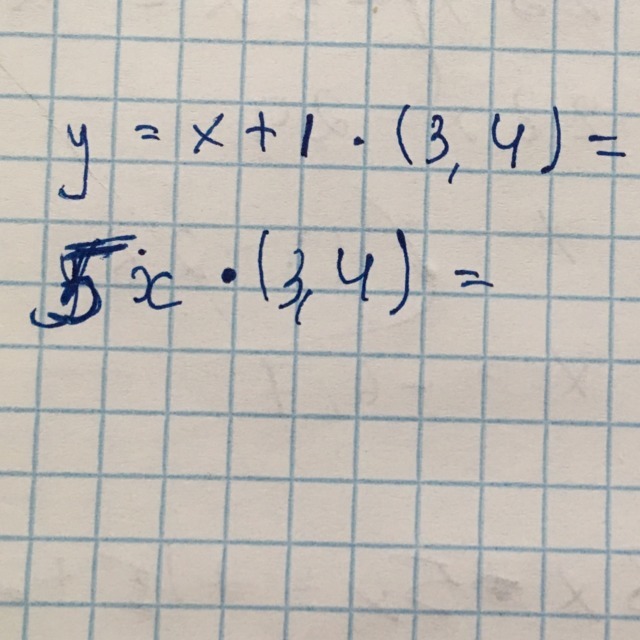 y = x + 1 . (3, 4) =
5x • (3, 4) =